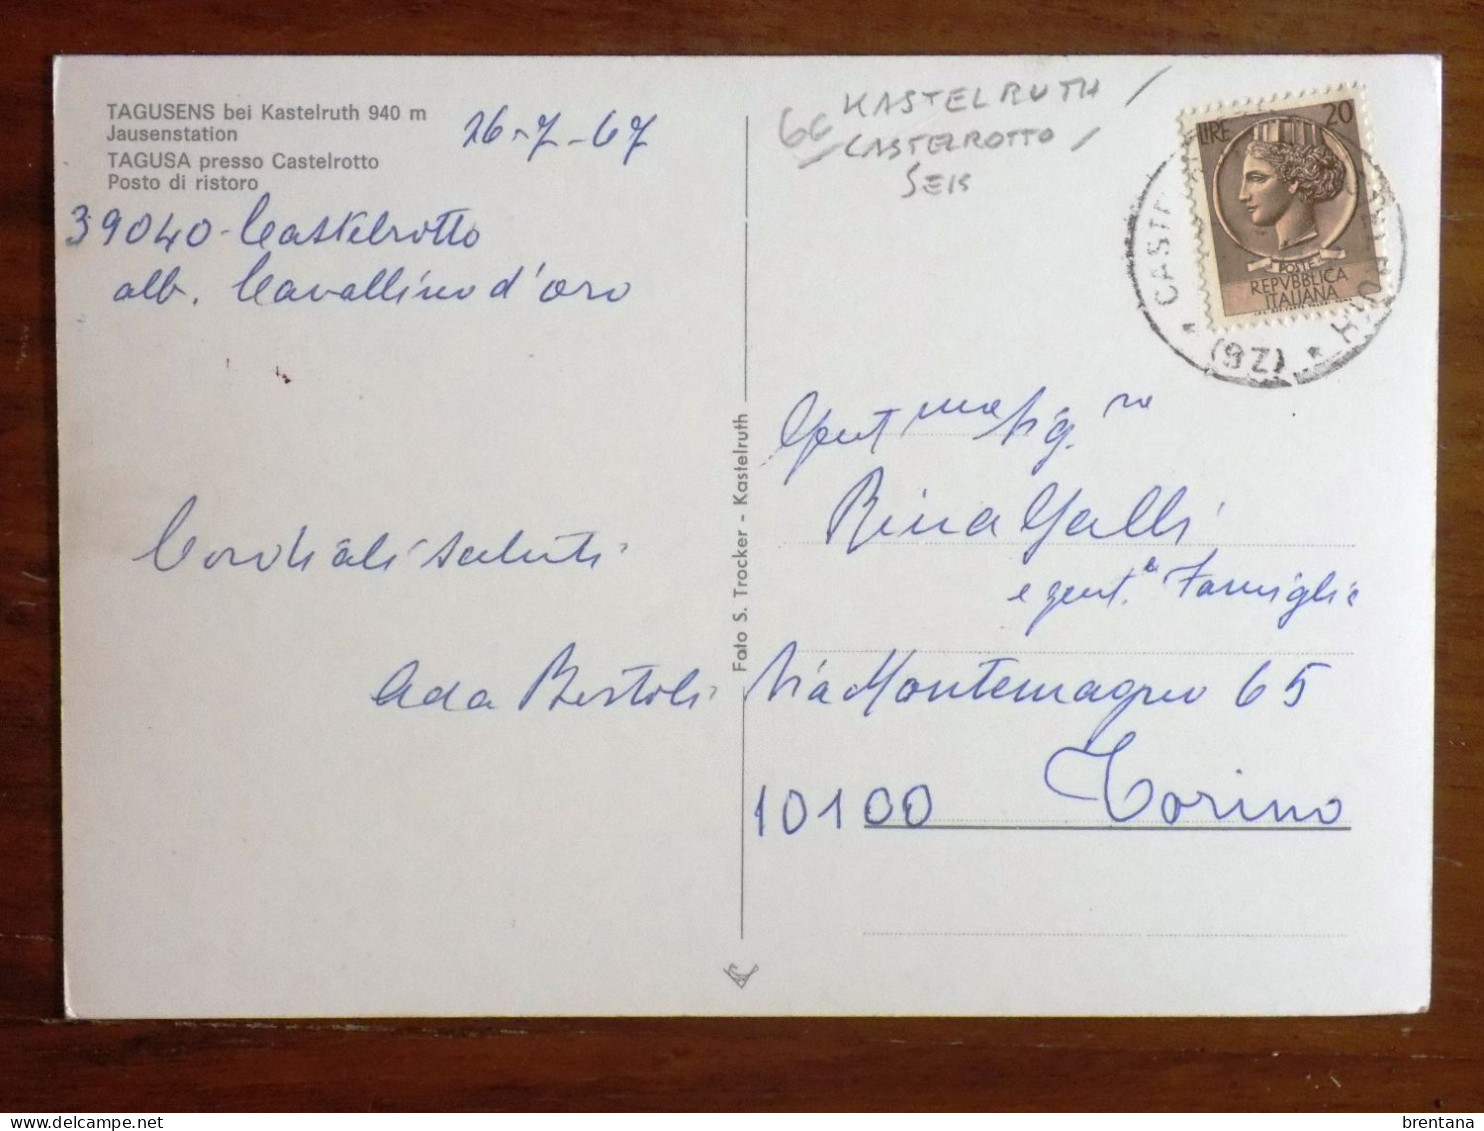 TAGUSENS bei Kastelruth 940 m
Jausenstation
TAGUSA presso Castelrotto
Posto di ristoro
26-7-67
39040-Castelrotto
alb. Cavallino d'oro
Cordiali saluti
Ada Bertoli
Foto S. Trocker - Kastelruth
KASTELRUTH /
CASTELROTTO /
SEIS
LIRE 20
POSTE
REPVBBLICA
ITALIANA
(BZ)
Gent.me Sig.re
Rina Galli
e gent.a Famiglia
Via Montemagno 65
10100 Torino
brentana